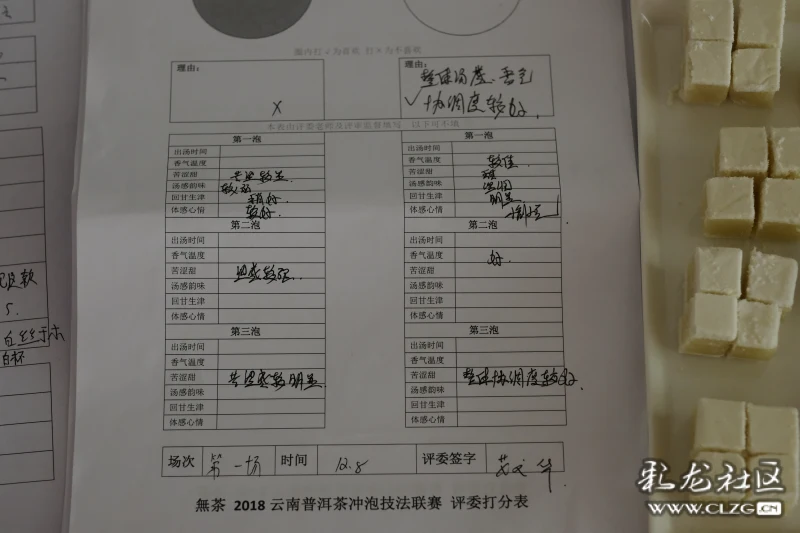 圈内打√为喜欢 打×为不喜欢
理由:
×
理由:
整体汤感、香气
√协调度较好.
本表由评委巡师及评审监督填写 以下可不填
第一泡
出汤时间
香气温度
苦涩甜 苦涩较显.
汤感韵味 较弱
回甘生津 稍好.
体感心情 较好.
第二泡
出汤时间
香气温度
苦涩甜
汤感韵味
回甘生津
体感心情
第三泡
出汤时间
香气温度
苦涩甜 苦涩感较明显.
汤感韵味
回甘生津
体感心情
第一泡
出汤时间
香气温度 较佳.
苦涩甜
汤感韵味
回甘生津 明显
体感心情
第二泡
出汤时间
香气温度 好.
苦涩甜
汤感韵味
回甘生津
体感心情
第三泡
出汤时间
香气温度
苦涩甜 整体协调度较好.
汤感韵味
回甘生津
体感心情
场次 第一场 时间 12.8 评委签字
無茶 2018 云南普洱茶冲泡技法联赛 评委打分表
彩龙社区
WWW.CLZG.CN